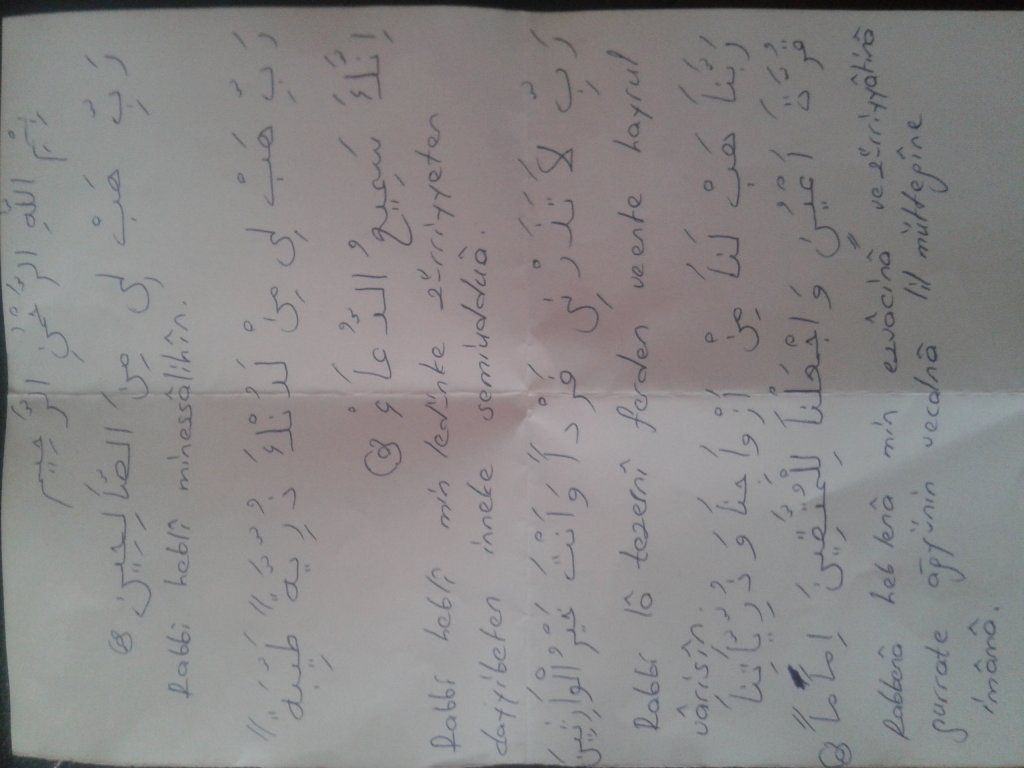 بِسْمِ اللّٰهِ الرَّحْمٰنِ الرَّحِيمِ
رَبِّ هَبْ لِى مِنَ الصَّالِحِينَ
Rabbi heblî minessâlihîn.
رَبِّ هَبْ لِى مِنْ لَدُنْكَ ذُرِّيَّةً طَيِّبَةً
اِنَّكَ سَمِيعُ الدُّعَاءِ
Rabbi heblî min ledünke zürriyyeten
dayyibeten inneke semiuddua.
رَبِّ لاَ تَذَرْنِى فَرْدًا وَاَنْتَ خَيْرُ الْوَارِثِينَ
Rabbi lâ tezernî ferden veente hayrul
vârisîn.
رَبَّنَا هَبْ لَنَا مِنْ اَزْوَاجِنَا وَذُرِّيَّاتِنَا
قُرَّةَ اَعْيُنٍ وَاجْعَلْنَا لِلْمُتَّقِينَ اِمَامًا
Rabbenâ heb lenâ min ezvâcinâ vezürriyyâtinâ
gurrate âğyünin vecalnâ lil müttegîne
imâmâ.